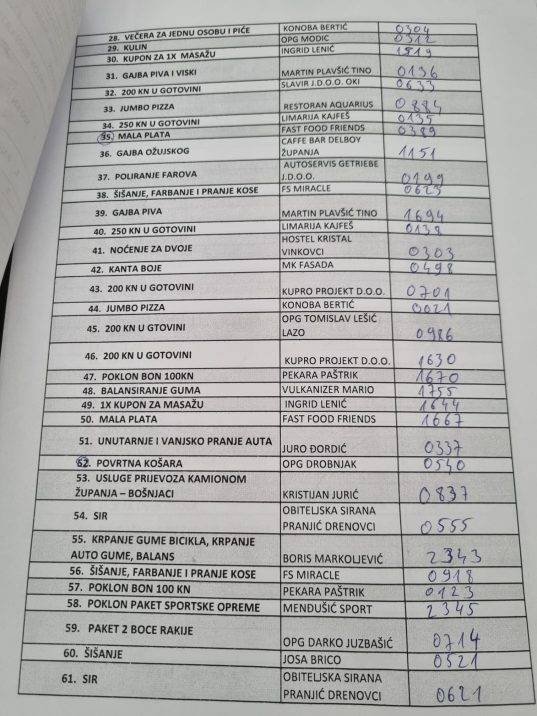 28. VEČERA ZA JEDNU OSOBU I PIĆE KONOBA BERTIĆ 0304
29. KULIN OPG MODIC 0312
30. KUPON ZA 1X MASAŽU INGRID LENIĆ 1519
31. GAJBA PIVA I VISKI MARTIN PLAVŠIĆ TINO 0136
32. 200 KN U GOTOVINI SLAVIR J.D.O.O. OKI 0633
33. JUMBO PIZZA RESTORAN AQUARIUS 0884
34. 250 KN U GOTOVINI LIMARIJA KAJFEŠ 0135
35. MALA PLATA FAST FOOD FRIENDS 0389
36. GAJBA OŽUJSKOG CAFFE BAR DELBOY ŽUPANJA 1151
37. POLIRANJE FAROVA AUTOSERVIS GETRIEBE J.D.O.O. 0199
38. ŠIŠANJE, FARBANJE I PRANJE KOSE FS MIRACLE 0623
39. GAJBA PIVA MARTIN PLAVŠIĆ TINO 1694
40. 250 KN U GOTOVINI LIMARIJA KAJFEŠ 0138
41. NOĆENJE ZA DVOJE HOSTEL KRISTAL VINKOVCI 0303
42. KANTA BOJE MK FASADA 0498
43. 200 KN U GOTOVINI KUPRO PROJEKT D.O.O. 0701
44. JUMBO PIZZA KONOBA BERTIĆ 0021
45. 200 KN U GTOVINI OPG TOMISLAV LEŠIĆ LAZO 0986
46. 200 KN U GOTOVINI KUPRO PROJEKT D.O.O. 1630
47. POKLON BON 100KN PEKARA PAŠTRIK 1670
48. BALANSIRANJE GUMA VULKANIZER MARIO 1755
49. 1X KUPON ZA MASAŽU INGRID LENIĆ 1644
50. MALA PLATA FAST FOOD FRIENDS 1667
51. UNUTARNJE I VANJSKO PRANJE AUTA JURO ĐORDIĆ 0337
52. POVRTNA KOŠARA OPG DROBNJAK 0540
53. USLUGE PRIJEVOZA KAMIONOM
ŽUPANJA – BOŠNJACI KRISTIJAN JURIĆ 0837
54. SIR OBITELJSKA SIRANA PRANJIĆ DRENOVCI 0555
55. KRPANJE GUME BICIKLA, KRPANJE
AUTO GUME, BALANS BORIS MARKOLJEVIĆ 2343
56. ŠIŠANJE, FARBANJE I PRANJE KOSE FS MIRACLE 0918
57. POKLON BON 100 KN PEKARA PAŠTRIK 0123
58. POKLON PAKET SPORTSKE OPREME MENDUŠIĆ SPORT 2345
59. PAKET 2 BOCE RAKIJE OPG DARKO JUZBAŠIĆ 0714
60. ŠIŠANJE JOSA BRICO 0521
61. SIR OBITELJSKA SIRANA PRANJIĆ DRENOVCI 0621